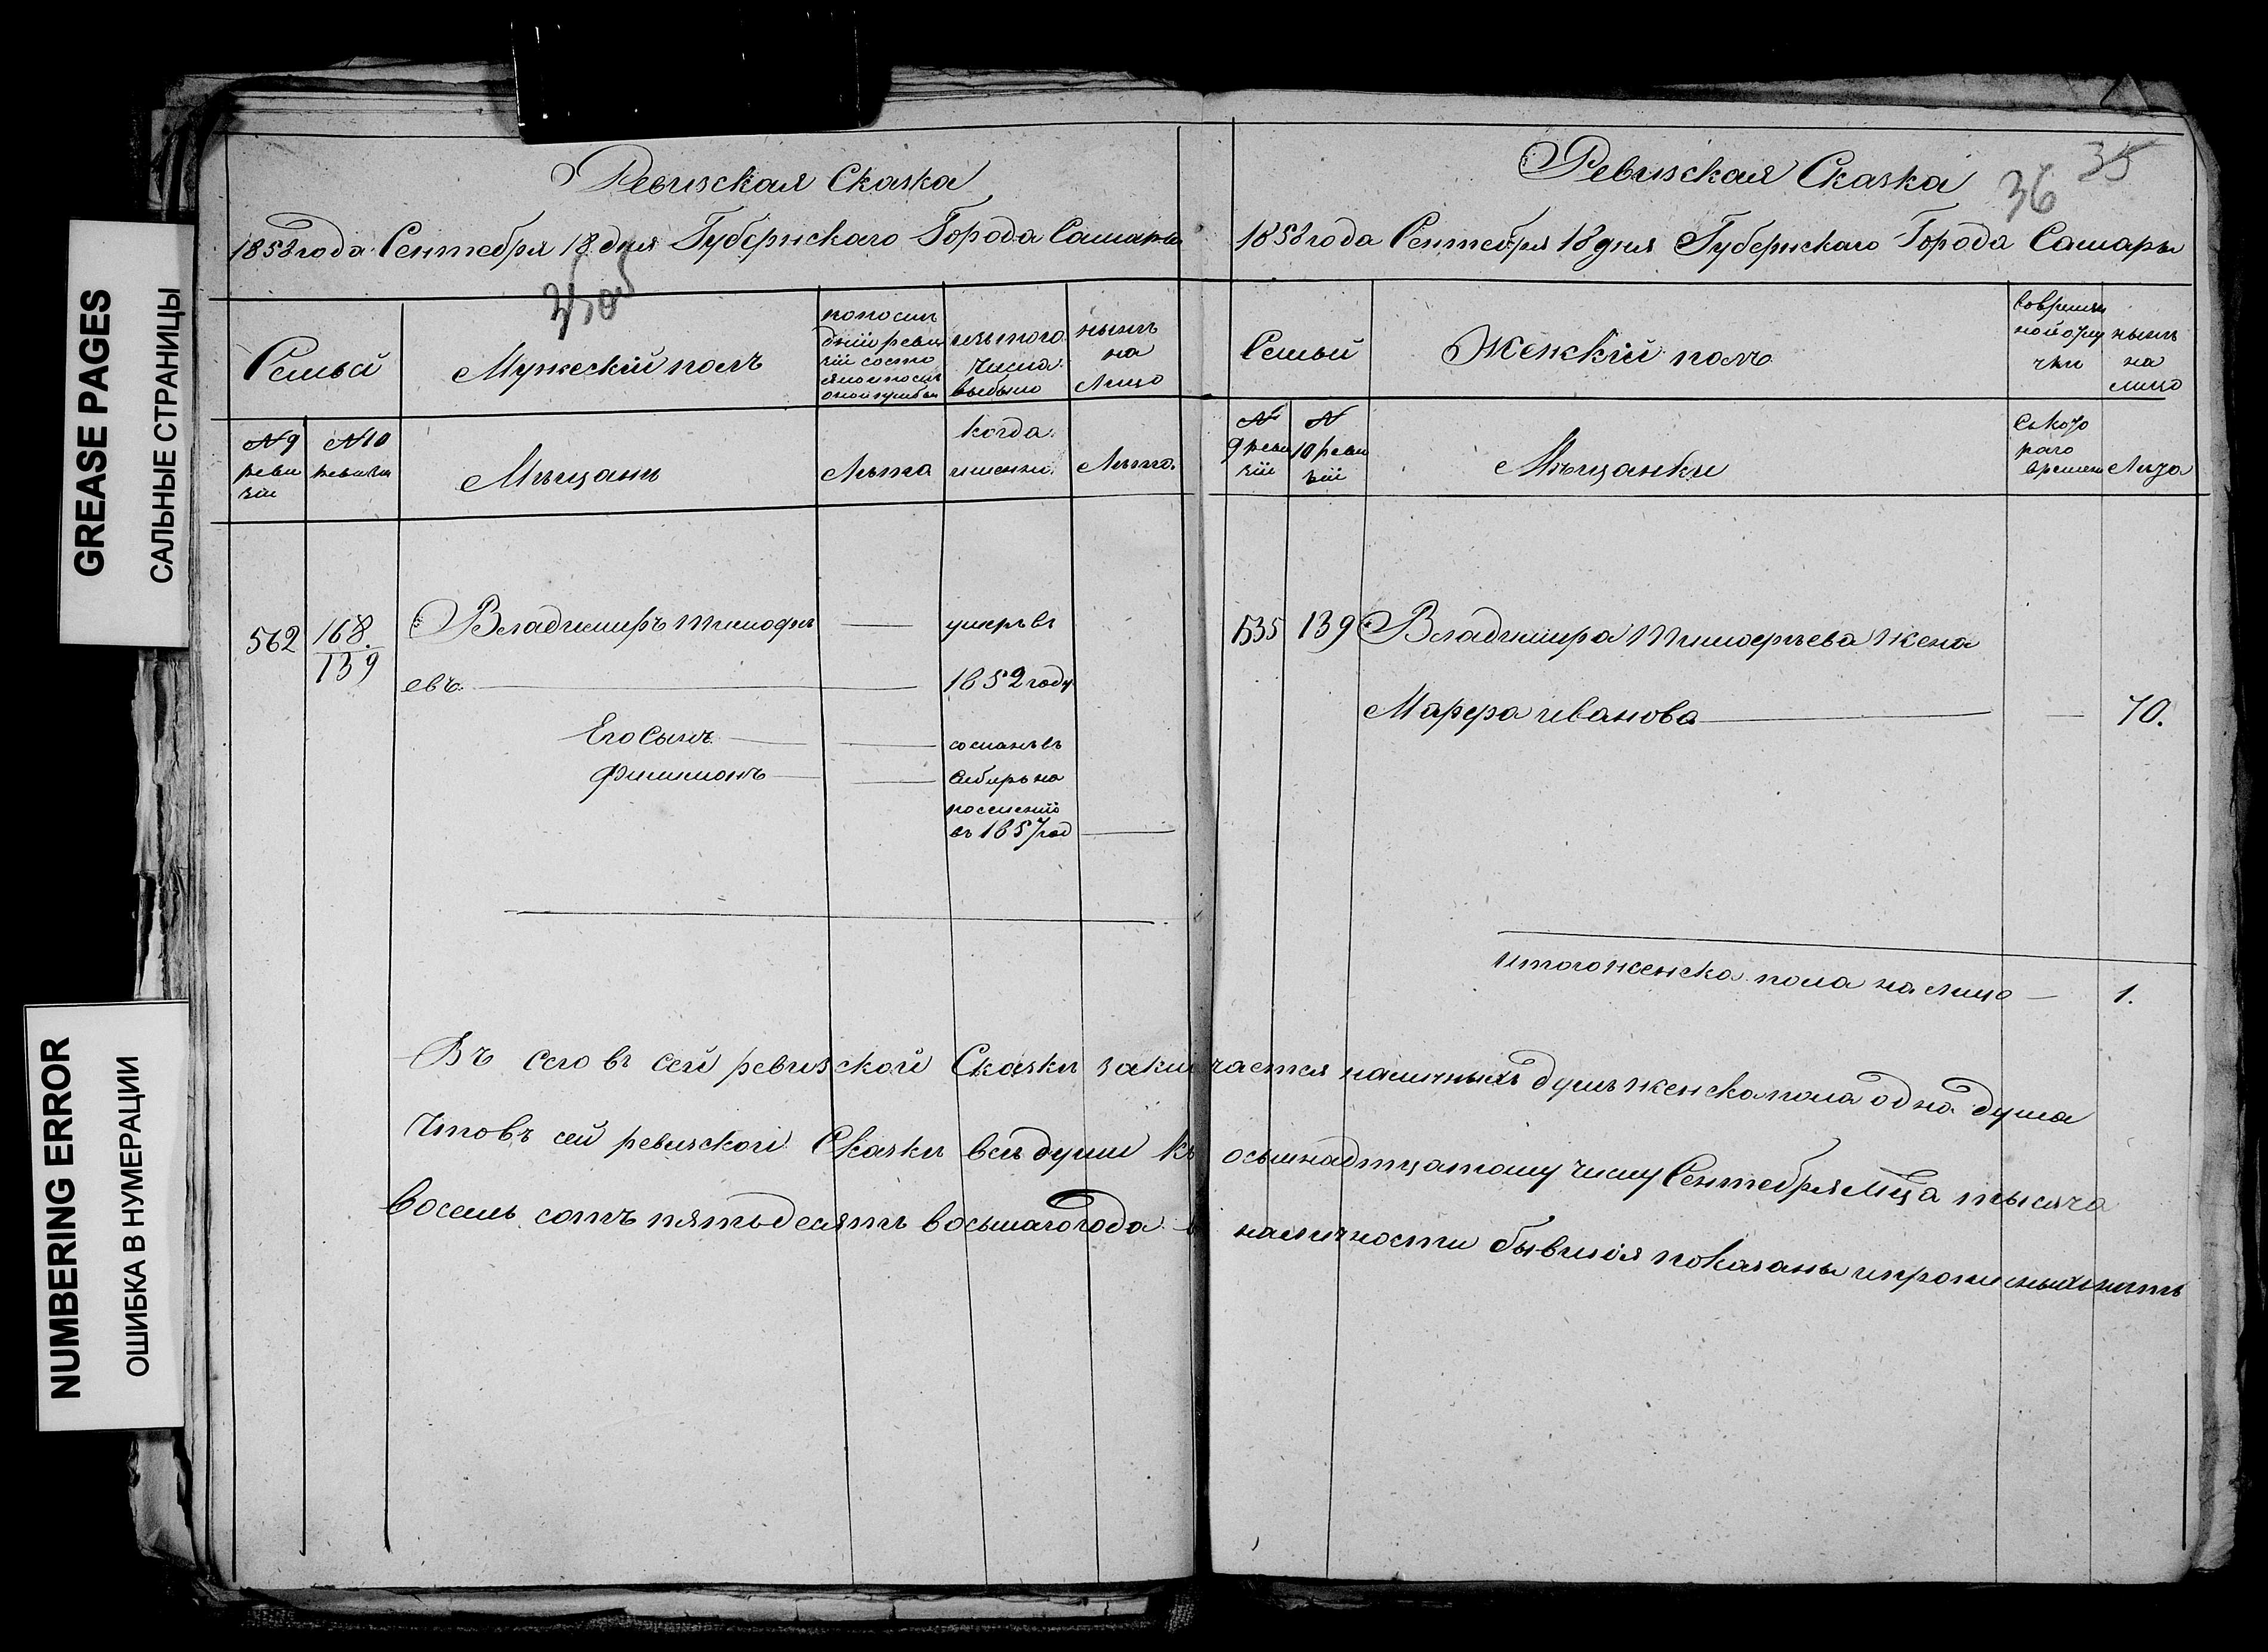 GREASE PAGES
САЛЬНЫЕ СТРАНИЦЫ
NUMBERING ERROR
ОШИБКА В НУМЕРАЦИИ
Ревизская Сказка
1858 года Сентября 18 дня Губернскаго Города Самары
Семьи
Мужеский полъ
изъ того
числа
выбыло
нынѣ
на
Лицо
№ 9
реви
зіи
№ 10
ревизіи
Мѣщанѣ
Лѣта
когда
именно.
Лѣта.
562
168.
139
Владимиръ Тимофѣ
евъ
умеръ въ
1852 году
Его Сынъ
Филимонъ
сосланъ въ
Сибирь на
поселеніе
въ 1857 год
Ревизская Сказка
36 35
1858 года Сентября 18 дня Губернскаго Города Самары
Семьи
Женскій полъ
нынѣ
на
лицо
№
9 реви
зіи
№
10 реви
зіи
Мѣщанки
Съ кото
раго
времени
Лѣта
535 139 Владимира Тимофѣева жена
Марфа Иванова 70.
итого женска пола на лицо 1.
Въ сего въ сей ревизской Сказки заключается наличныхъ душъ женска пола одна душа
Что въ сей ревизской Сказки всѣ души къ осьмнадцатому числу Сентября Мца тысяча
восемь сотъ пятьдесятъ восьмаго года в наличности бывшія показаны и прописныхъ нѣтъ